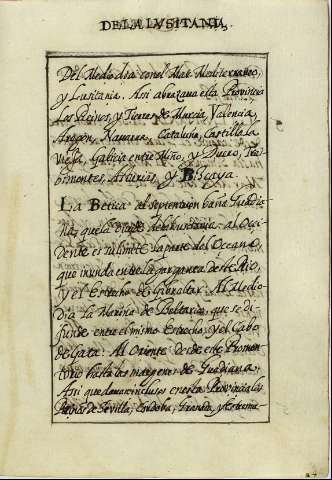 DE LA LVSITANIA,
Del Medio dia con el Mar Mediterraneo,
y Lusitania. Asi abrazaua esta Provincia
Los Reinos, y Tierras de Murcia, Valencia,
Aragon, Navarra, Cataluña, Castilla la
Vieja, Galicia entre Miño, y Duero, Tras
os montes, Asturias, y Biscaya.
La Betica al septentrion baña Guadia
na, que la diuide de la Lusitania: al Occi
dente es su limite la parte del Oceano,
que inunda entre la garganta de este Rio,
y el Estrecho de Gibraltar: Al Medio
Dia la Marina de Balthario, que se di
funde entre el mismo Estrecho, y el Cabo
de Gata: Al Oriente desde este Promon
torio hasta las margenes de Guadiana.
Asi quedauan inclusos en esta Provincia los
Reinos de Sevilla, Cordoba, Granada, y Estrema